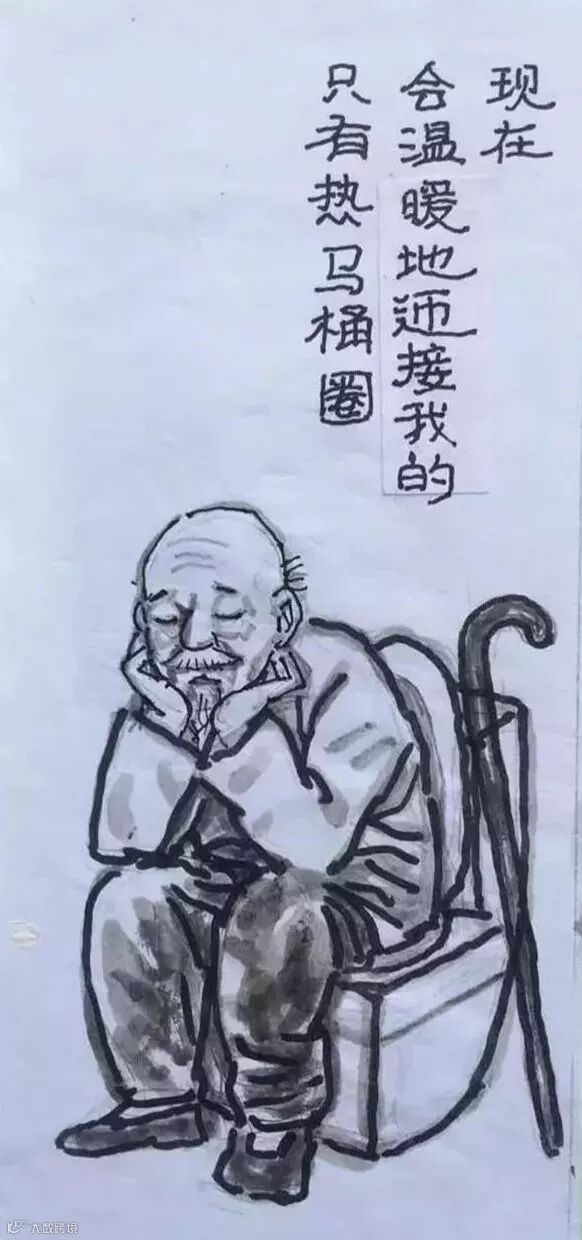 现在
会温暖地迊接我的
只有热马桶圈
大数跨境